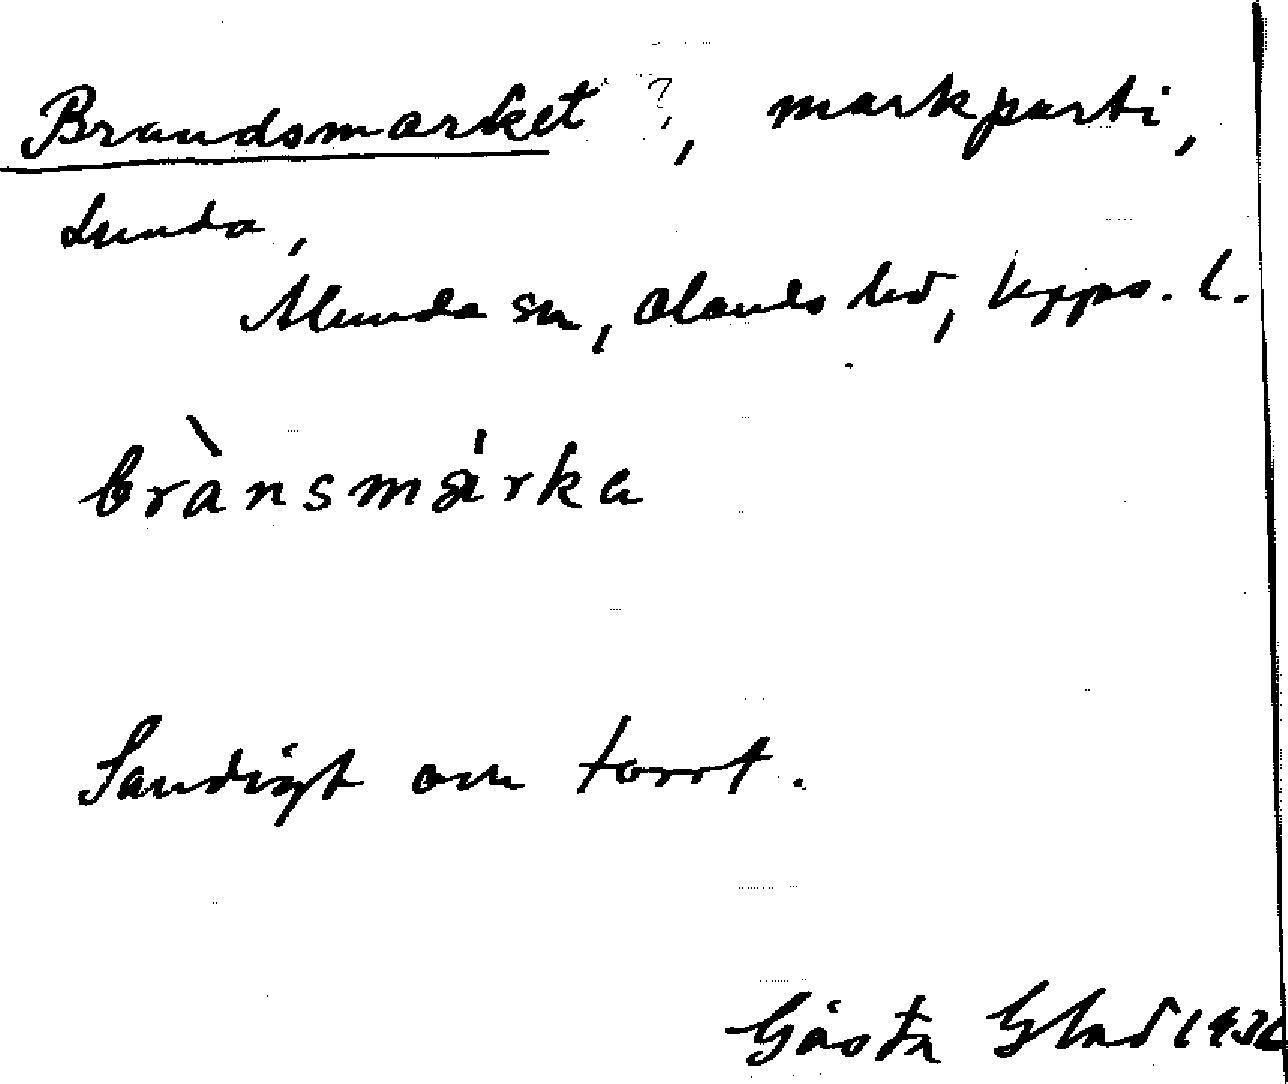 Brandsmarket ?, markparti,
Lunda,
Alunda sn, Olands hd, Upps. l.
brànsmárka
Sandigt om torrt.
Gösta Glad